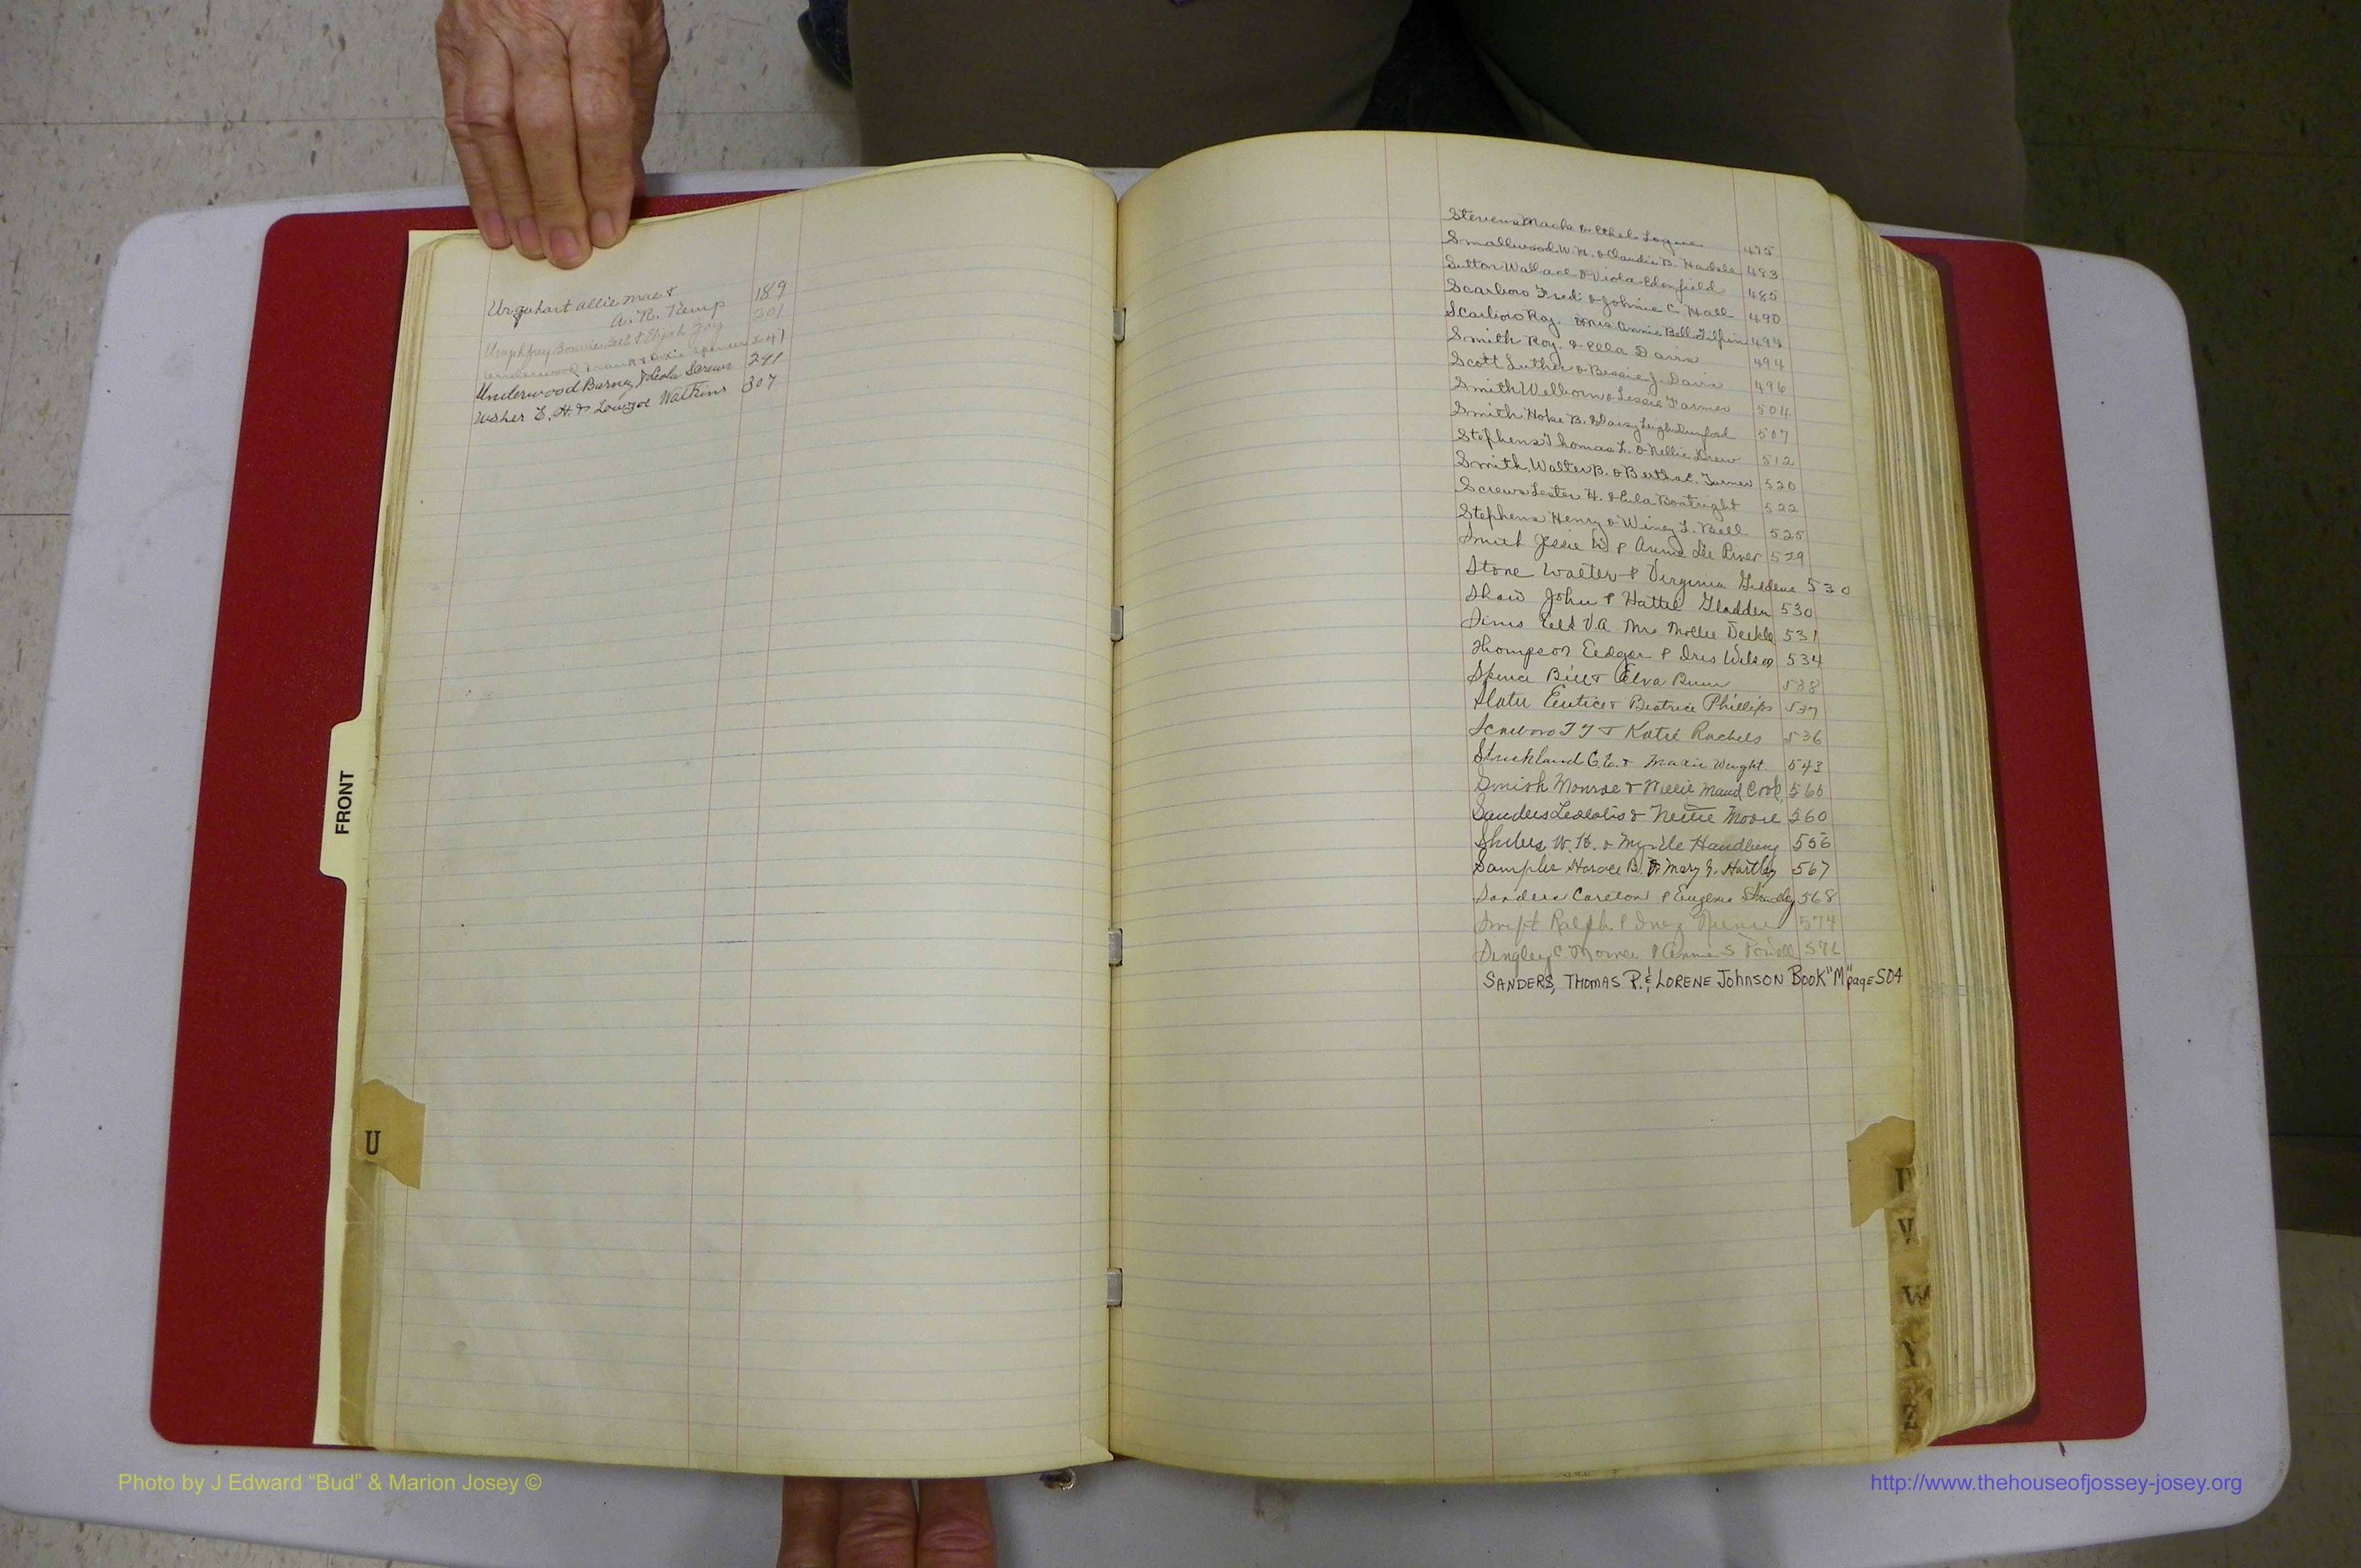 Urquhart Allie Mae &
A. R. Kemp 189
Umphfrey Bonnie Bell & Elijah 201
Underwood Frank & Dixie Spence 247
Underwood Barney & Leola Screws 291
Usher E. H. & Watkins 307
FRONT
U
Stevens Mack & Ethel Logue 475
Smallwood W. H. & Claudie B. 483
Sutton Wallace & Viola Edenfield 485
Scarboro Fred & Johnie C. Hall 490
Scarboro Roy & Mrs Annie Bell 494
Smith Roy & Ella Davis 494
Scott Luther & Bessie J. Davis 496
Smith Welborn & Lessie Farmer 504
Smith Hoke B. & Daisy Leigh 507
Stephens Thomas L. & Nellie Drew 512
Smith, Walter B. & Bertha L. Turner 520
Screws Lester H. & Eula Boatright 522
Stephens Henry & Winey L. Bell 525
Smith Jessie W & Annie Lee 529
Stone Walter & Virginia 530
Shaw John & Hattie Gladden 530
Sims V.A. Mrs Mollie Deekle 531
Thompson Eedgar & Dres Wilson 534
Spence Bill & Elva 538
Eutice & Beatrice Phillips 537
Scarboro T J & Katie Rachels 536
Strickland C.E. & Maxie Wright 543
Smith Monroe & Nellie Maud Cook 565
Sanders & Nettie Moore 560
W. H. & Myrtle 556
Samples Horace B. & Mary E. Hartley 567
Sanders Carlton & Eugenia 568
Swift Ralph & Inez Spence 574
C. & Annie S Powell
SANDERS, THOMAS P. & LORENE JOHNSON BOOK "M" page 504
V
W
Photo by J Edward “Bud” & Marion Josey ©
http://www.thehouseofjossey-josey.org